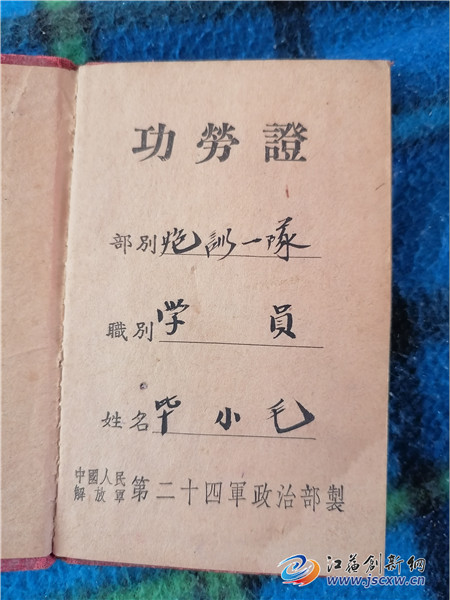 功勞證
部別炮訓一隊
職別学員
姓名毕小毛
中國人民解放軍第二十四軍政治部製
江苏创新网
www.jscxw.cn